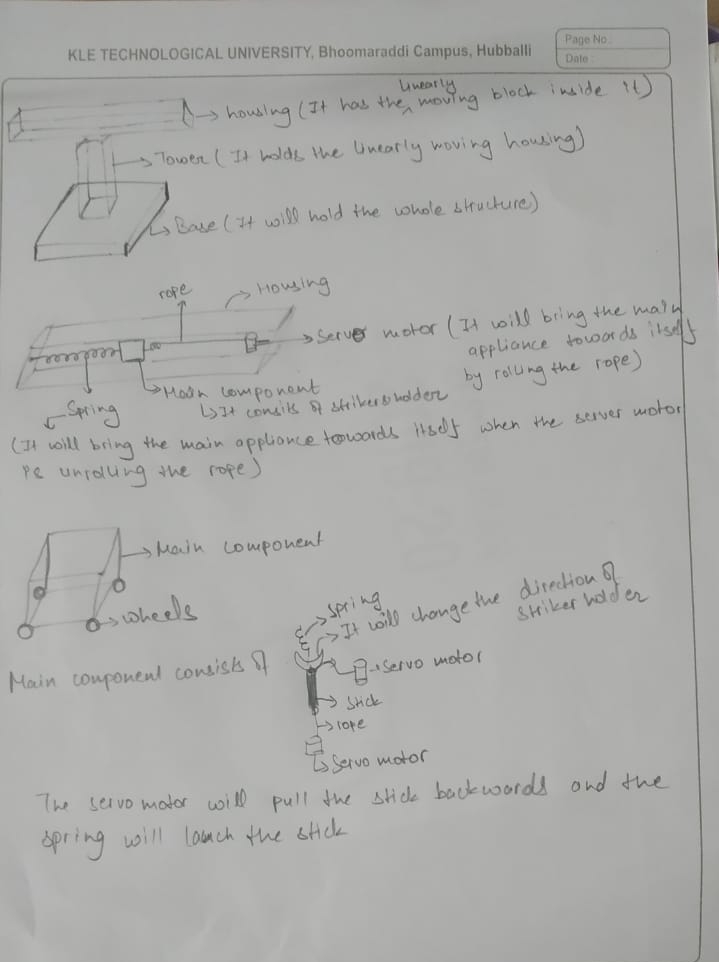 KLE TECHNOLOGICAL UNIVERSITY, Bhoomaraddi Campus, Hubballi
Page No.:
Date :
linearly
housing (It has the ^ moving block inside it)
Tower (It holds the linearly moving housing)
Base (It will hold the whole structure)
rope
Housing
Servo motor (It will bring the main
appliance towards itself
by rolling the rope)
Main component
It consits of striker & holder
Spring
(It will bring the main appliance towards itself when the server motor
is unrolling the rope)
Main component
wheels
Spring
It will change the direction of
striker holder
Main component consists of
Servo motor
Stick
rope
Servo motor
The servo motor will pull the stick backwards and the
spring will lanch the stick